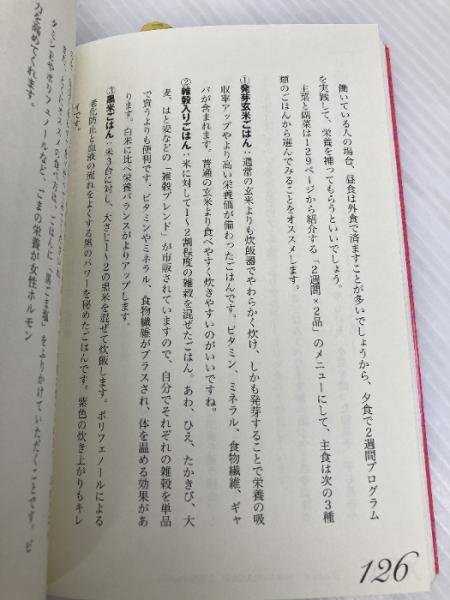 働いている人の場合、昼食は外食で済ますことが多いでしょうから、夕食で2週間プログラム
を実践して、栄養を補ってもらうといいでしょう。
主菜と副菜は129ページから紹介する「2週間×2品」のメニューにして、主食は次の3種
類のごはんから選んでみることをオススメします。
①発芽玄米ごはん:通常の玄米よりも炊飯器でやわらかく炊け、しかも発芽することで栄養の吸
収率アップやより高い栄養価が備わったごはんです。ビタミン、ミネラル、食物繊維、ギャ
バが含まれます。普通の玄米より食べやすく炊きやすいのがいいですね。
②雑穀入りごはん:米に対して1~2割程度の雑穀を混ぜたごはん。あわ、ひえ、たかきび、大
麦、はと麦などの「雑穀ブレンド」が市販されていますので、自分でそれぞれの雑穀を単品
で買うよりも便利です。ビタミンやミネラル、食物繊維がプラスされ、体を温める効果があ
ります。白米に比べ栄養バランスがよりアップします。
③黒米ごはん:米3合に対し、大さじ1~2の黒米を混ぜて炊飯します。ポリフェノールによる
老化防止と血液の流れをよくする黒のパワーを秘めたごはんです。紫色の炊き上がりもキレ
イです。
方は、ごはんに「黒ごま塩」をふりかけていただくことです。ビ
タミンEやポリフェノールなど、ごまの栄養が女性ホルモン
力を高めてくれます。
126